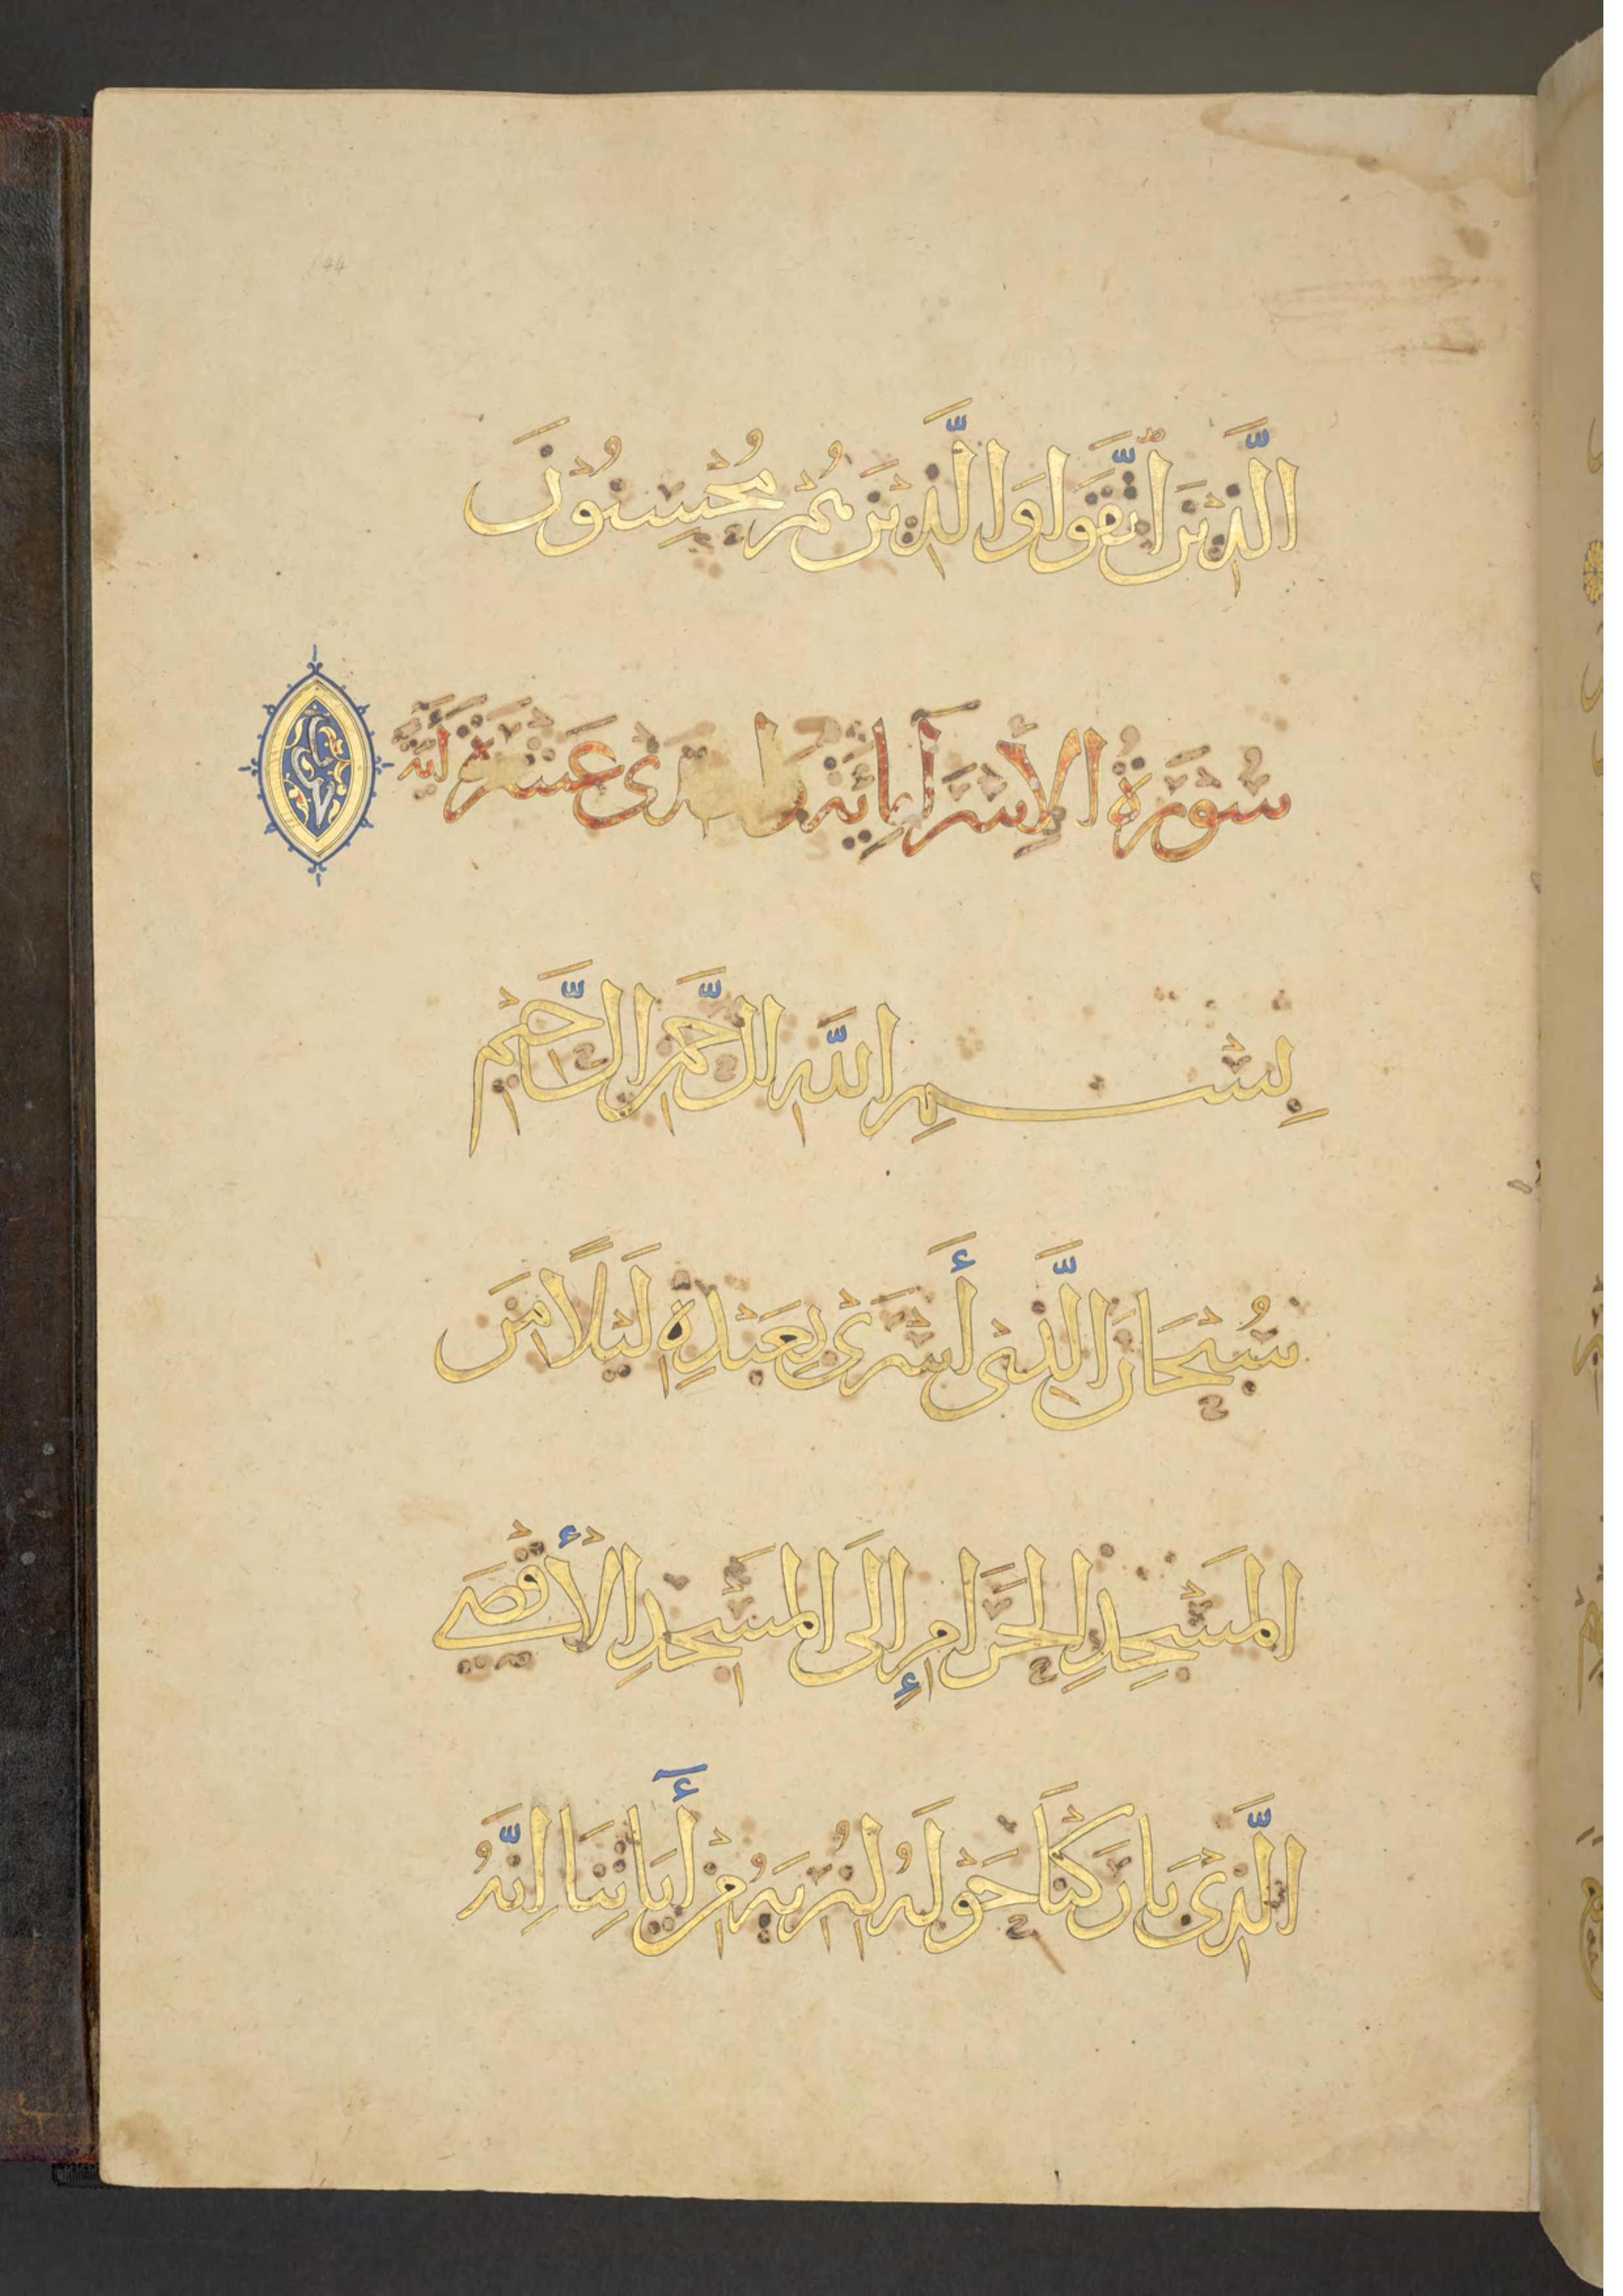 الَّذِينَ اتَّقَوا وَالَّذِينَ هُمْ مُحْسِنُونَ
سُورَةُ الإِسْرَا مِائَة عَشَرَة آيَة
بِسْمِ اللَّهِ الرَّحْمَنِ الرَّحِيمِ
سُبْحَانَ الَّذِي أَسْرَى بِعَبْدِهِ لَيْلًا مِنَ
المَسْجِدِ الحَرَامِ إِلَى المَسْجِدِ الأَقْصَى
الَّذِي بَارَكْنَا حَوْلَهُ لِنُرِيَهُ مِنْ أَيَاتِنَا إِنَّهُ